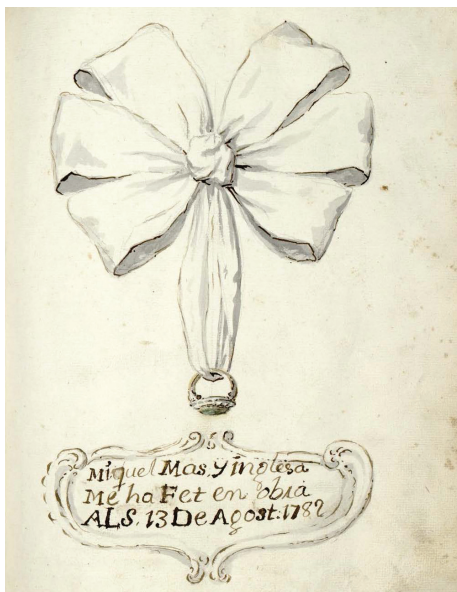 Miquel Mas, y inglesa
Me ha Fet en obra
ALS. 13 De Agost. 1782